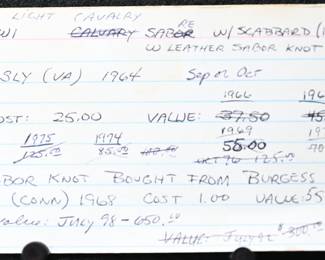 LIGHT CAVALRY
WI CALVARY SABRE W/ SCABBARD
W LEATHER SABOR KNOT
SLY (VA) 1964 Sep or Oct
1966 196
OST: 25.00 VALUE: 37.50 45
1975 1974 1969 197
125.00 85.00 55.00 70
OCT 76 125.00
BOR KNOT BOUGHT FROM BURGESS
(CONN) 1968 COST 1.00 VALUE: 55
value: JULY 98 - 650.00
VALUE: JULY 92 $300.00